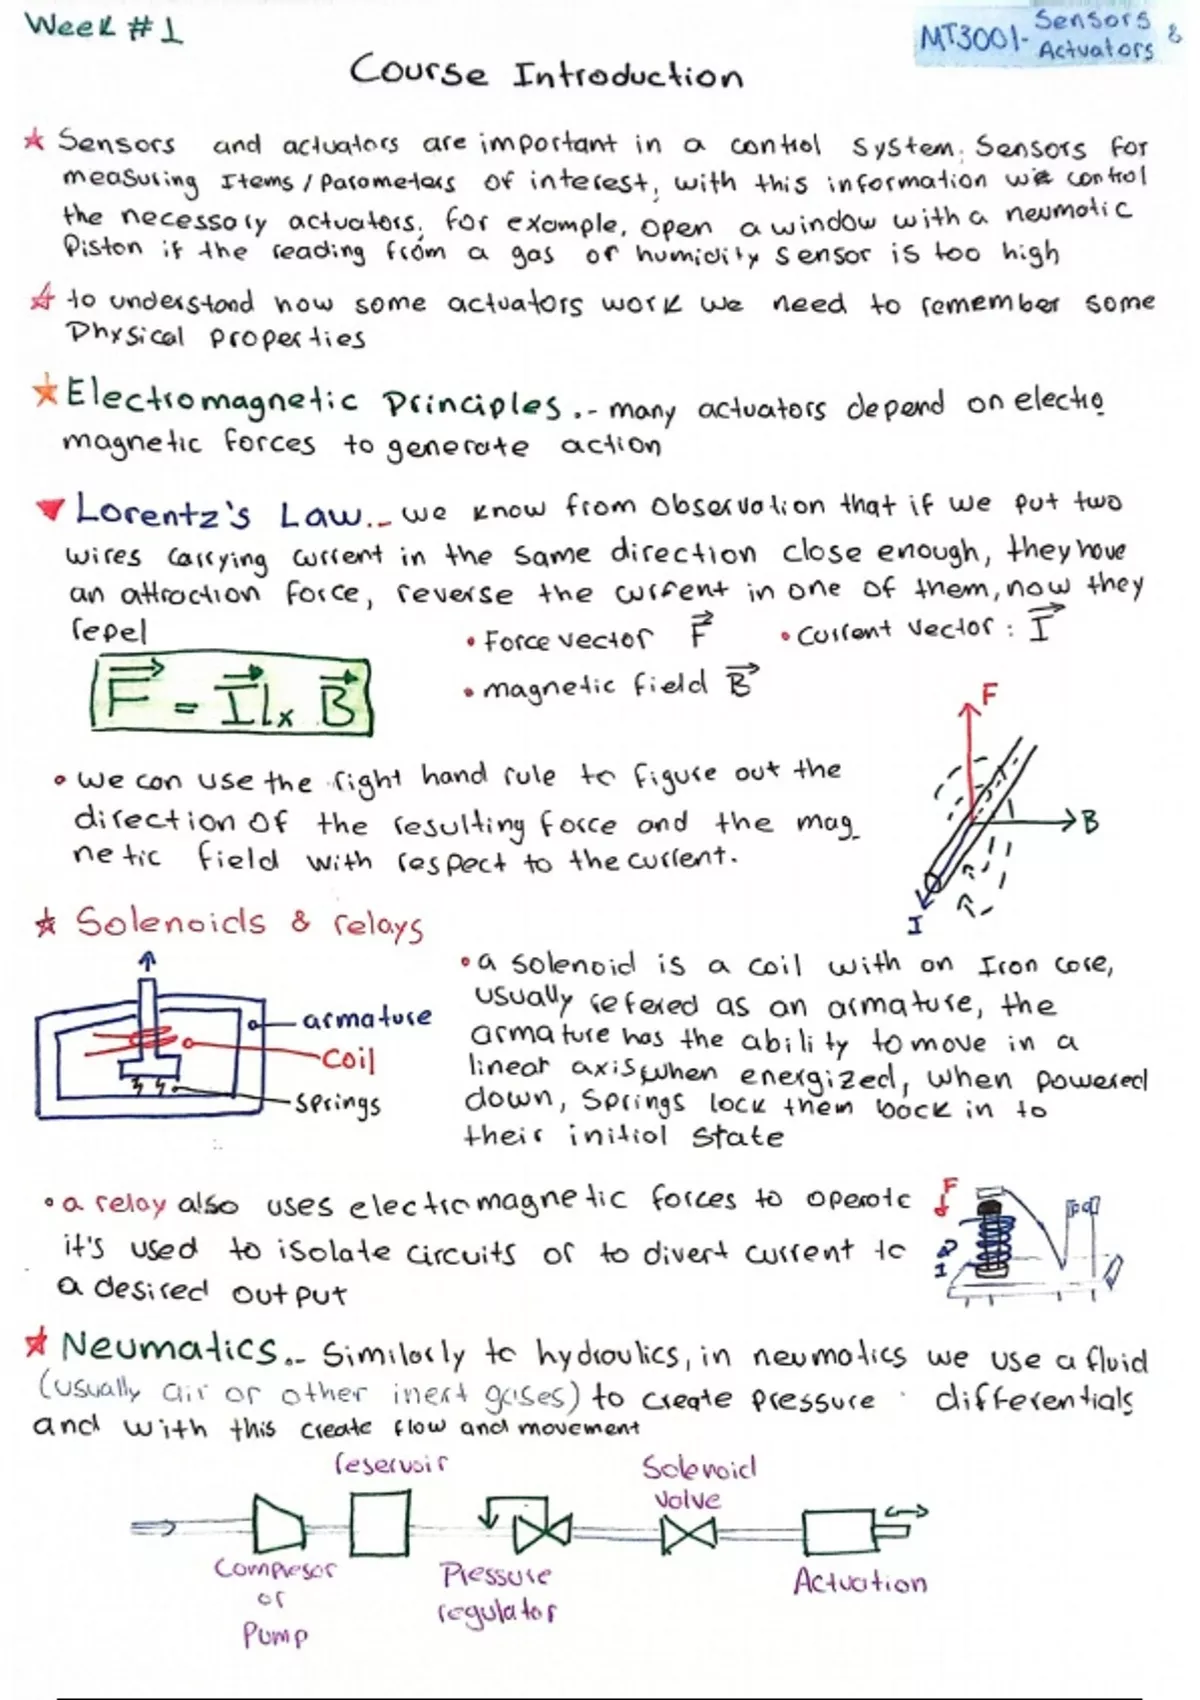 Week #1
MT3001- Sensors &
Actuators
Course Introduction
★ Sensors and actuators are important in a control system. Sensors for
measuring Items / Parameters of interest, with this information we control
the necessary actuators, for example, open a window with a neumatic
Piston if the reading from a gas or humidity sensor is too high
★ to understand how some actuators work we need to remember some
Physical properties
★ Electromagnetic Principles.- many actuators depend on electro
magnetic forces to generate action
▼ Lorentz's Law.- we know from observation that if we put two
wires carrying current in the same direction close enough, they have
an attraction force, reverse the current in one of them, now they
repel
• Force vector F⃗ • Current vector : I⃗
• magnetic field B⃗
F⃗ = I⃗l x B⃗
F
B
I
• we can use the right hand rule to figure out the
direction of the resulting force and the mag_
netic field with respect to the current.
★ Solenoids & relays
armature
coil
springs
• a solenoid is a coil with an Iron core,
usually refered as an armature, the
armature has the ability to move in a
linear axis when energized, when powered
down, Springs lock them back in to
their initial state
• a relay also uses electromagnetic forces to operate
it's used to isolate circuits or to divert current to
a desired output
F
I
★ Neumatics.- Similarly to hydraulics, in neumatics we use a fluid
(usually air or other inert gases) to create pressure differentials
and with this create flow and movement
reservoir
Solenoid
valve
Compresor
or
Pump
Pressure
regulator
Actuation